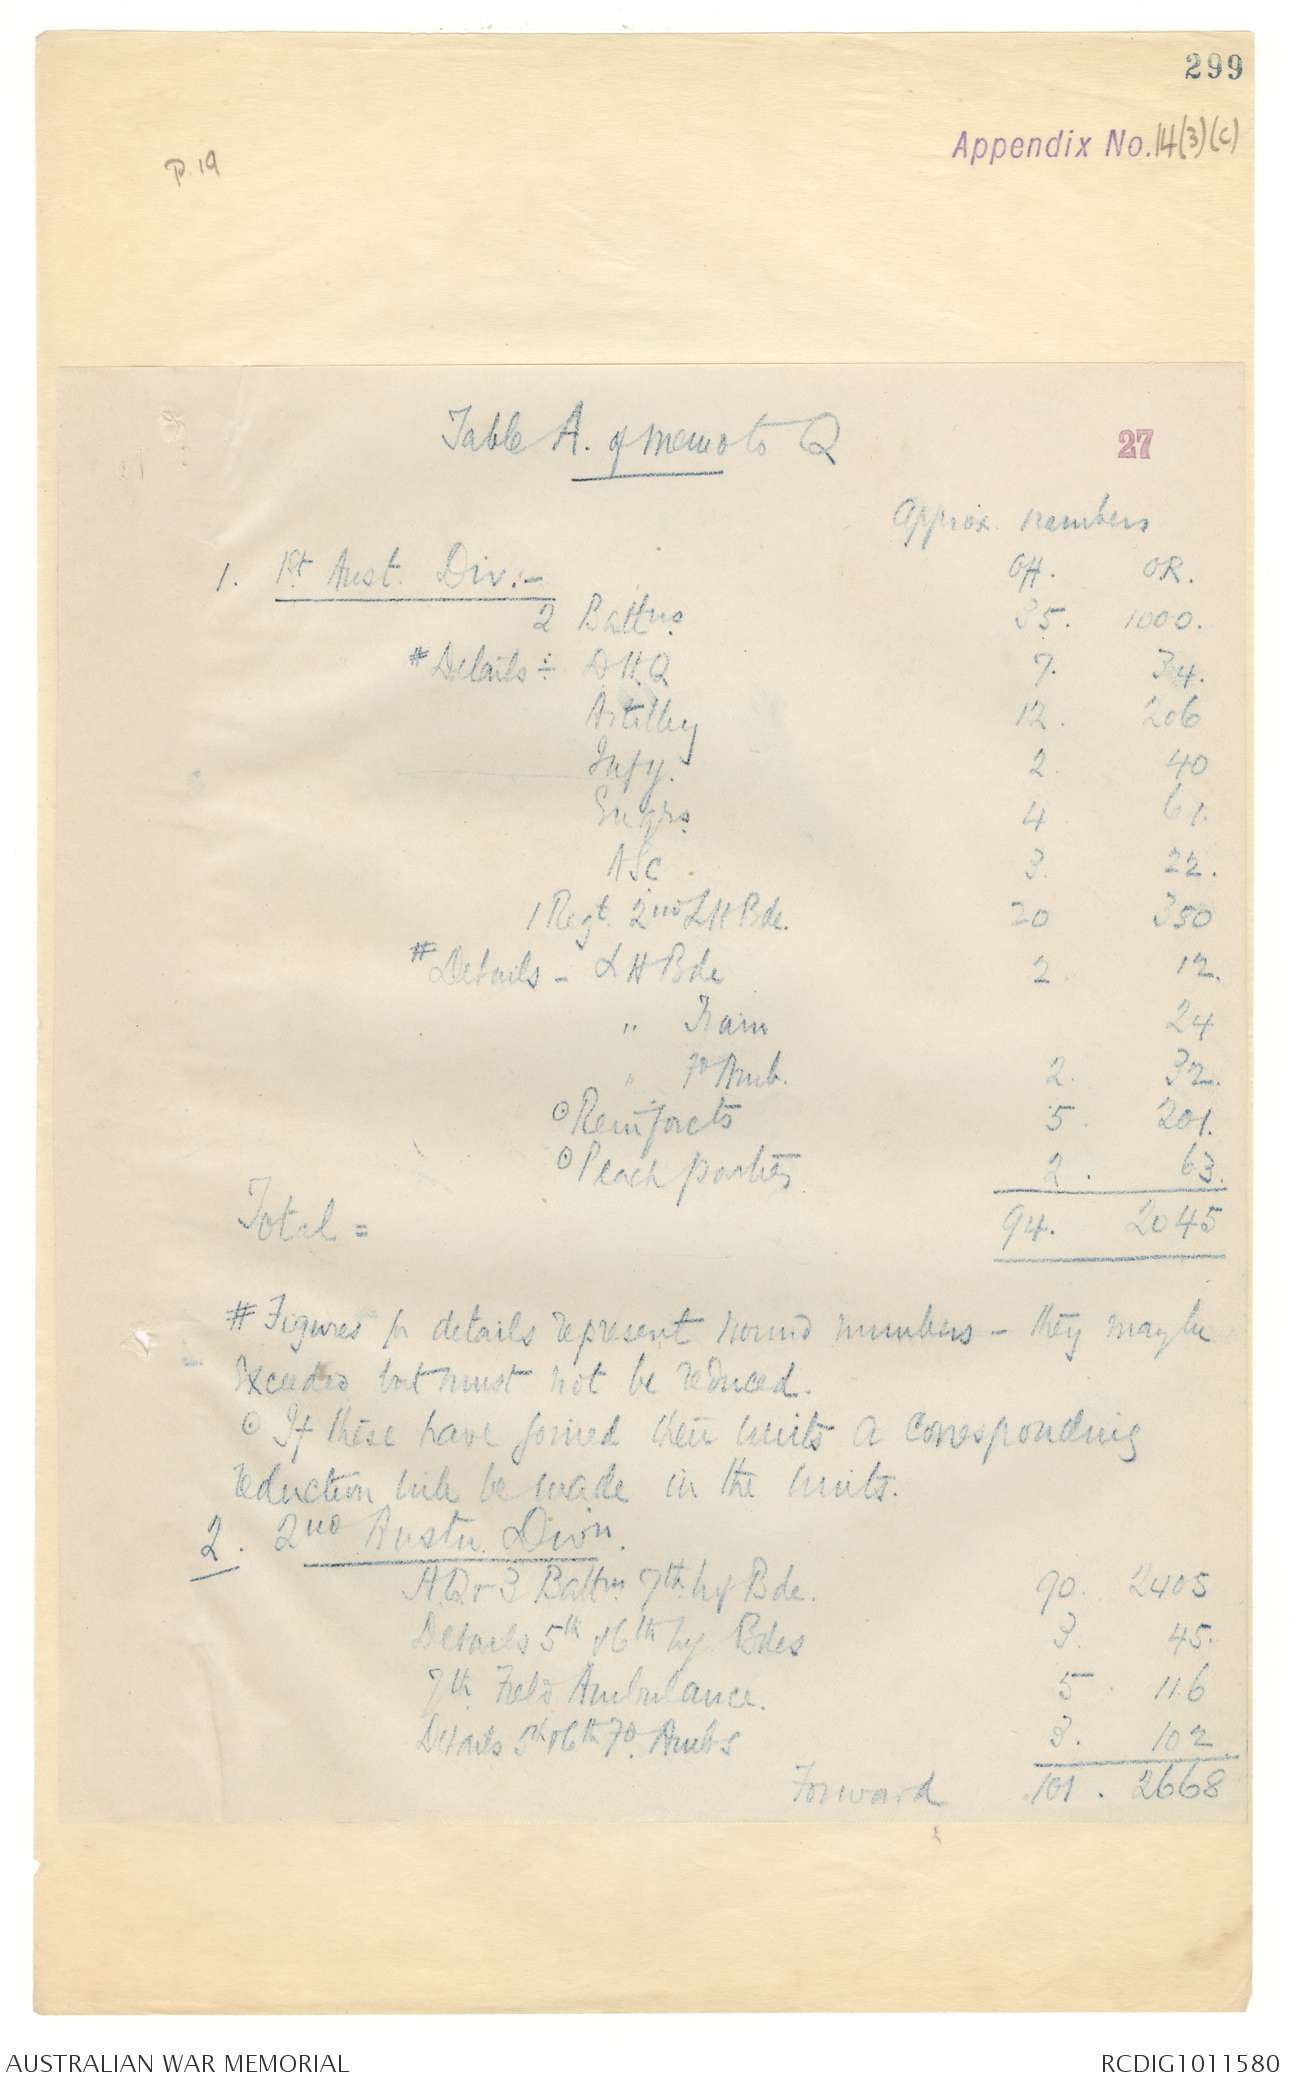 299
Appendix No. 14(3)(c)
p. 19
Table A. of memo to Q
27
Approx. numbers
1. 1st Aust. Div:- Off. OR.
2 Battns 35. 1000.
# Details :- D.H.Q 7. 34.
Artillery 12. 206
Infy. 2 40
Engrs. 4 61.
ASC 3. 22.
1 Regt. 2nd LH Bde. 20 350
# Details - LH Bde 2 12.
" Train 24
" Fd Amb. 2. 32.
⊙ Reinforcts 5. 201.
⊙ Beach parties 2. 63.
Total = 94. 2045
# Figures for details represent round numbers - they may be
exceeded but must not be reduced.
⊙ If these have joined their units a corresponding
reduction will be made in the units.
2. 2nd Austn. Divn.
H.Q & 3 Battns. 7th Inf Bde. 90. 2405
Details 5th & 6th Inf Bdes 3. 45.
7th Field Ambulance. 5. 116
Details 5th & 6th Fd. Ambs 3. 102
Forward 101. 2668
AUSTRALIAN WAR MEMORIAL
RCDIG1011580